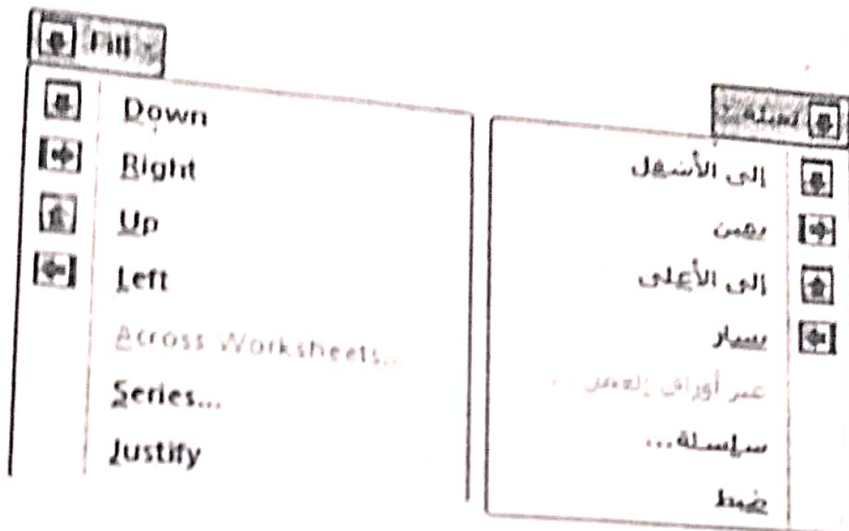 Fill
Down
Right
Up
Left
Across Worksheets...
Series...
Justify
تعبئة
إلى الأسفل
يمين
إلى الأعلى
يسار
عبر أوراق العمل...
سلسلة...
ضبط